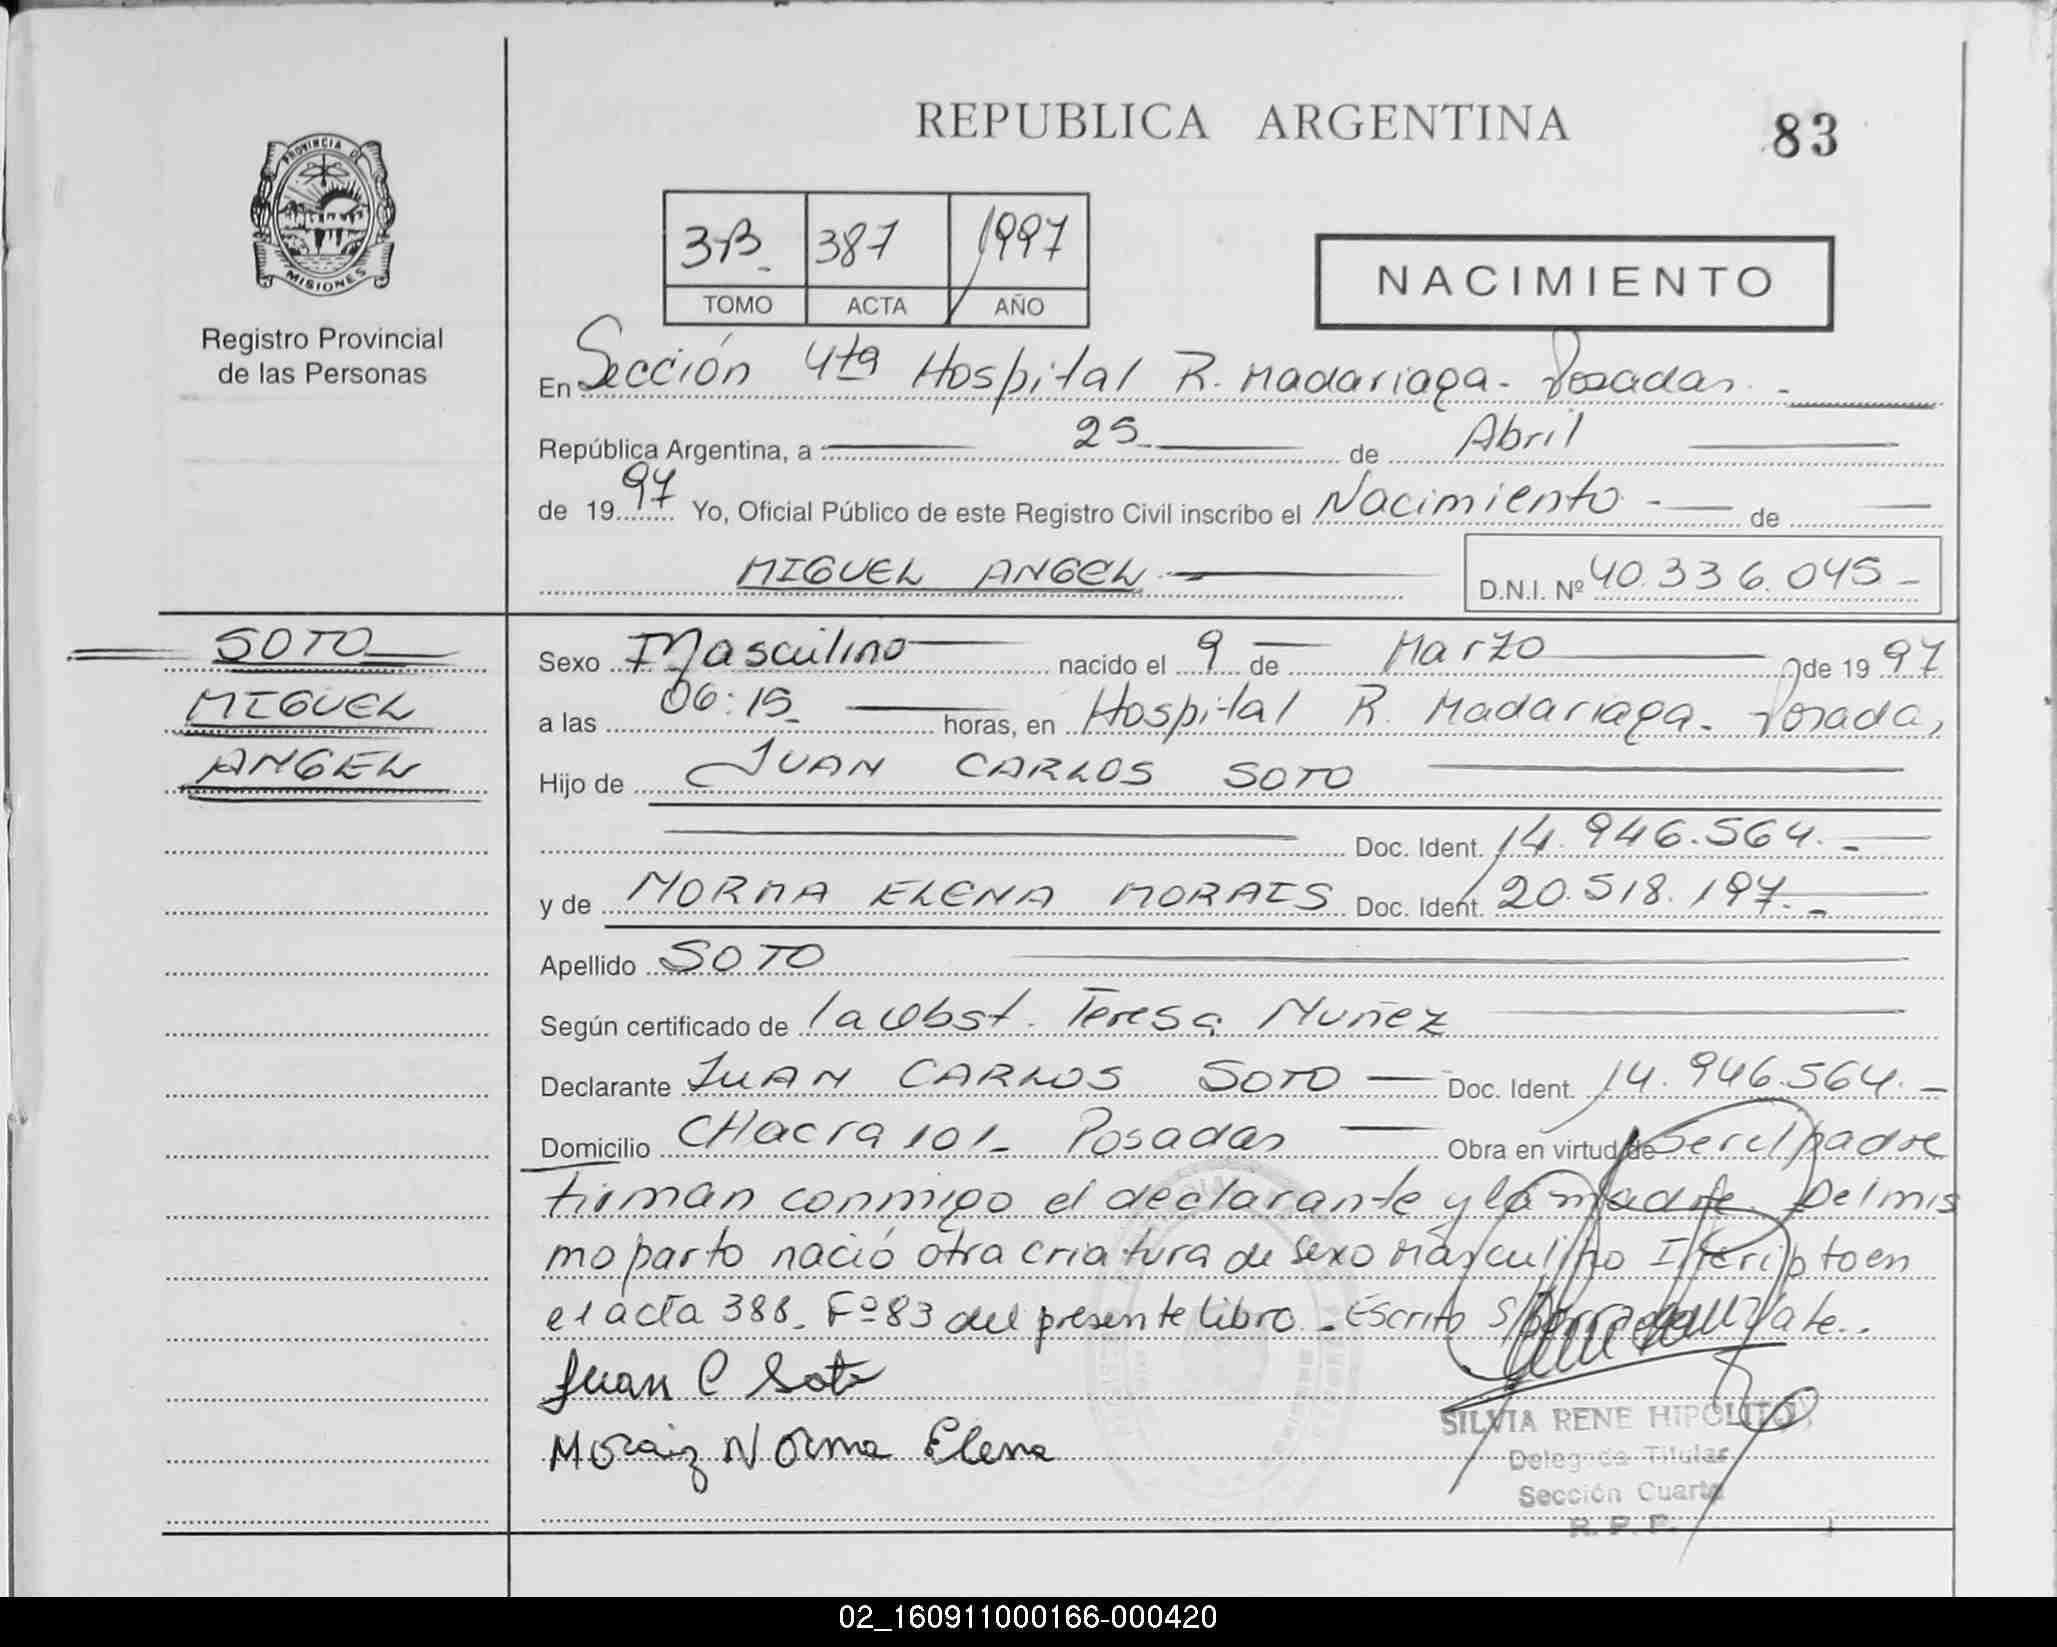 REPUBLICA ARGENTINA
83
PROVINCIA DE
MISIONES
Registro Provincial
de las Personas
3B 387 1997
TOMO ACTA AÑO
NACIMIENTO
En Sección 4ta Hospital R. Madariaga - Posadas. -
República Argentina, a 25 de Abril
de 1997 Yo, Oficial Público de este Registro Civil inscribo el Nacimiento - de
MIGUEL ANGEL D.N.I. Nº 40.336.045 -
SOTO
MIGUEL
ANGEL
Sexo Masculino nacido el 9 de Marzo de 1997
a las 06:15 horas, en Hospital R. Madariaga - Posadas
Hijo de JUAN CARLOS SOTO
Doc. Ident. 14.946.564. -
y de NORMA ELENA MORAIS Doc. Ident. 20.518.197. -
Apellido SOTO
Según certificado de la Obst. Teresa Nuñez
Declarante JUAN CARLOS SOTO Doc. Ident. 14.946.564. -
Domicilio CHacra 101 - Posadas Obra en virtud de Ser el padre
firman conmigo el declarante y la madre. Del mis
mo parto nació otra criatura de sexo Masculino Inscripto en
el acta 388. Fº 83 del presente libro. - Escrito S/
Juan C Soto
Moraiz Norma Elena
SILVIA RENE HIPOLITO
Delegada Titular
Sección Cuarta
R. P. P.
02_160911000166-000420